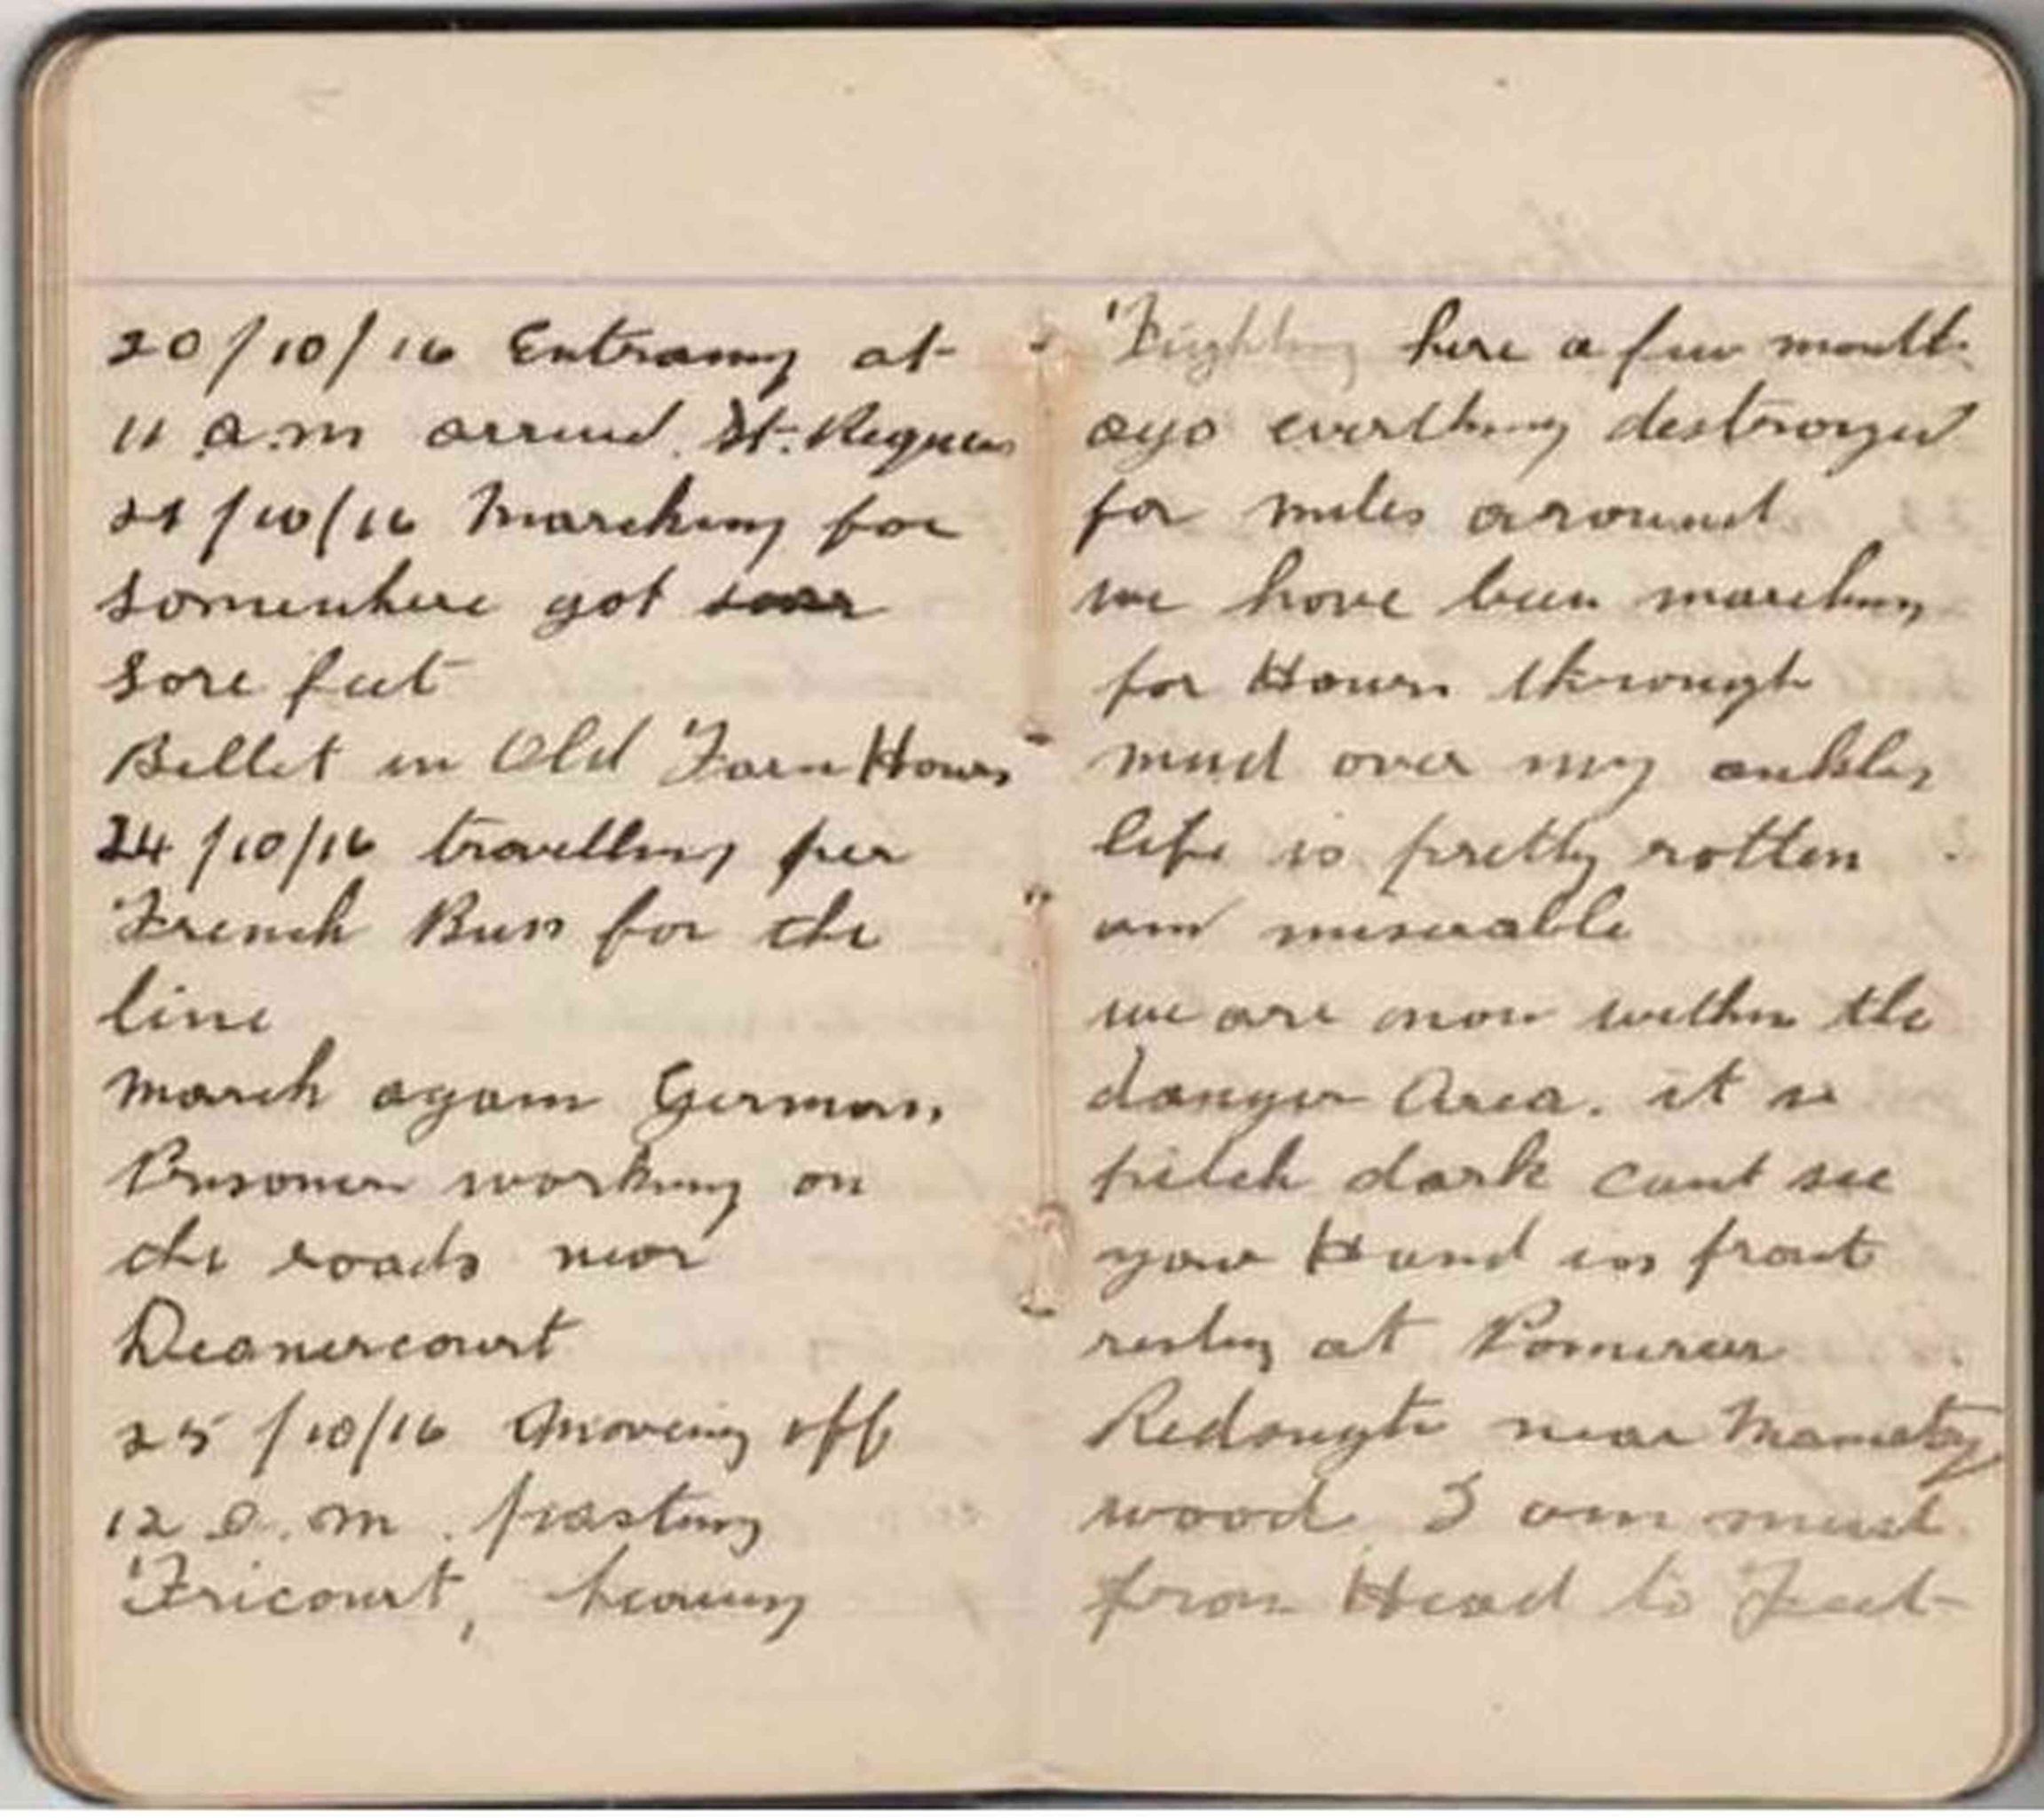 20/10/16 Entraing at
11 a.m arrived. St. Requier
21/10/16 Marching for
Somewhere got
sore feet
Billet in Old Farm House
24/10/16 travelling per
French Buss for the
line
March again German
Prisoners working on
the roads near
Deanercourt
25/10/16 Moveing off
12 a.m. passing
Fricourt, heavy
Fighting here a few months
ago everthing destroyed
for miles around
we have been marching
for Hours through
mud over my ankles
life is pretty rotten
and miserable
we are now within the
danger Area. it is
pitch dark cant see
your Hand in front
resting at Pomerer
Redought near Mametz
wood I am mud
from Head to Feet